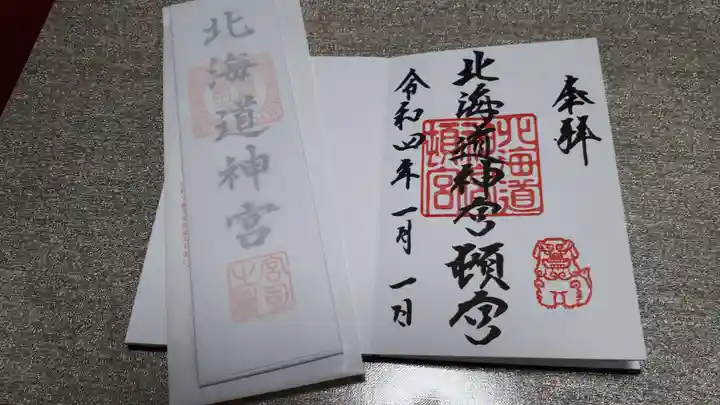 奉拝
北海道神宮頓宮
北海道
頓宮
令和四年一月一日
北海道神宮
宮司
之印